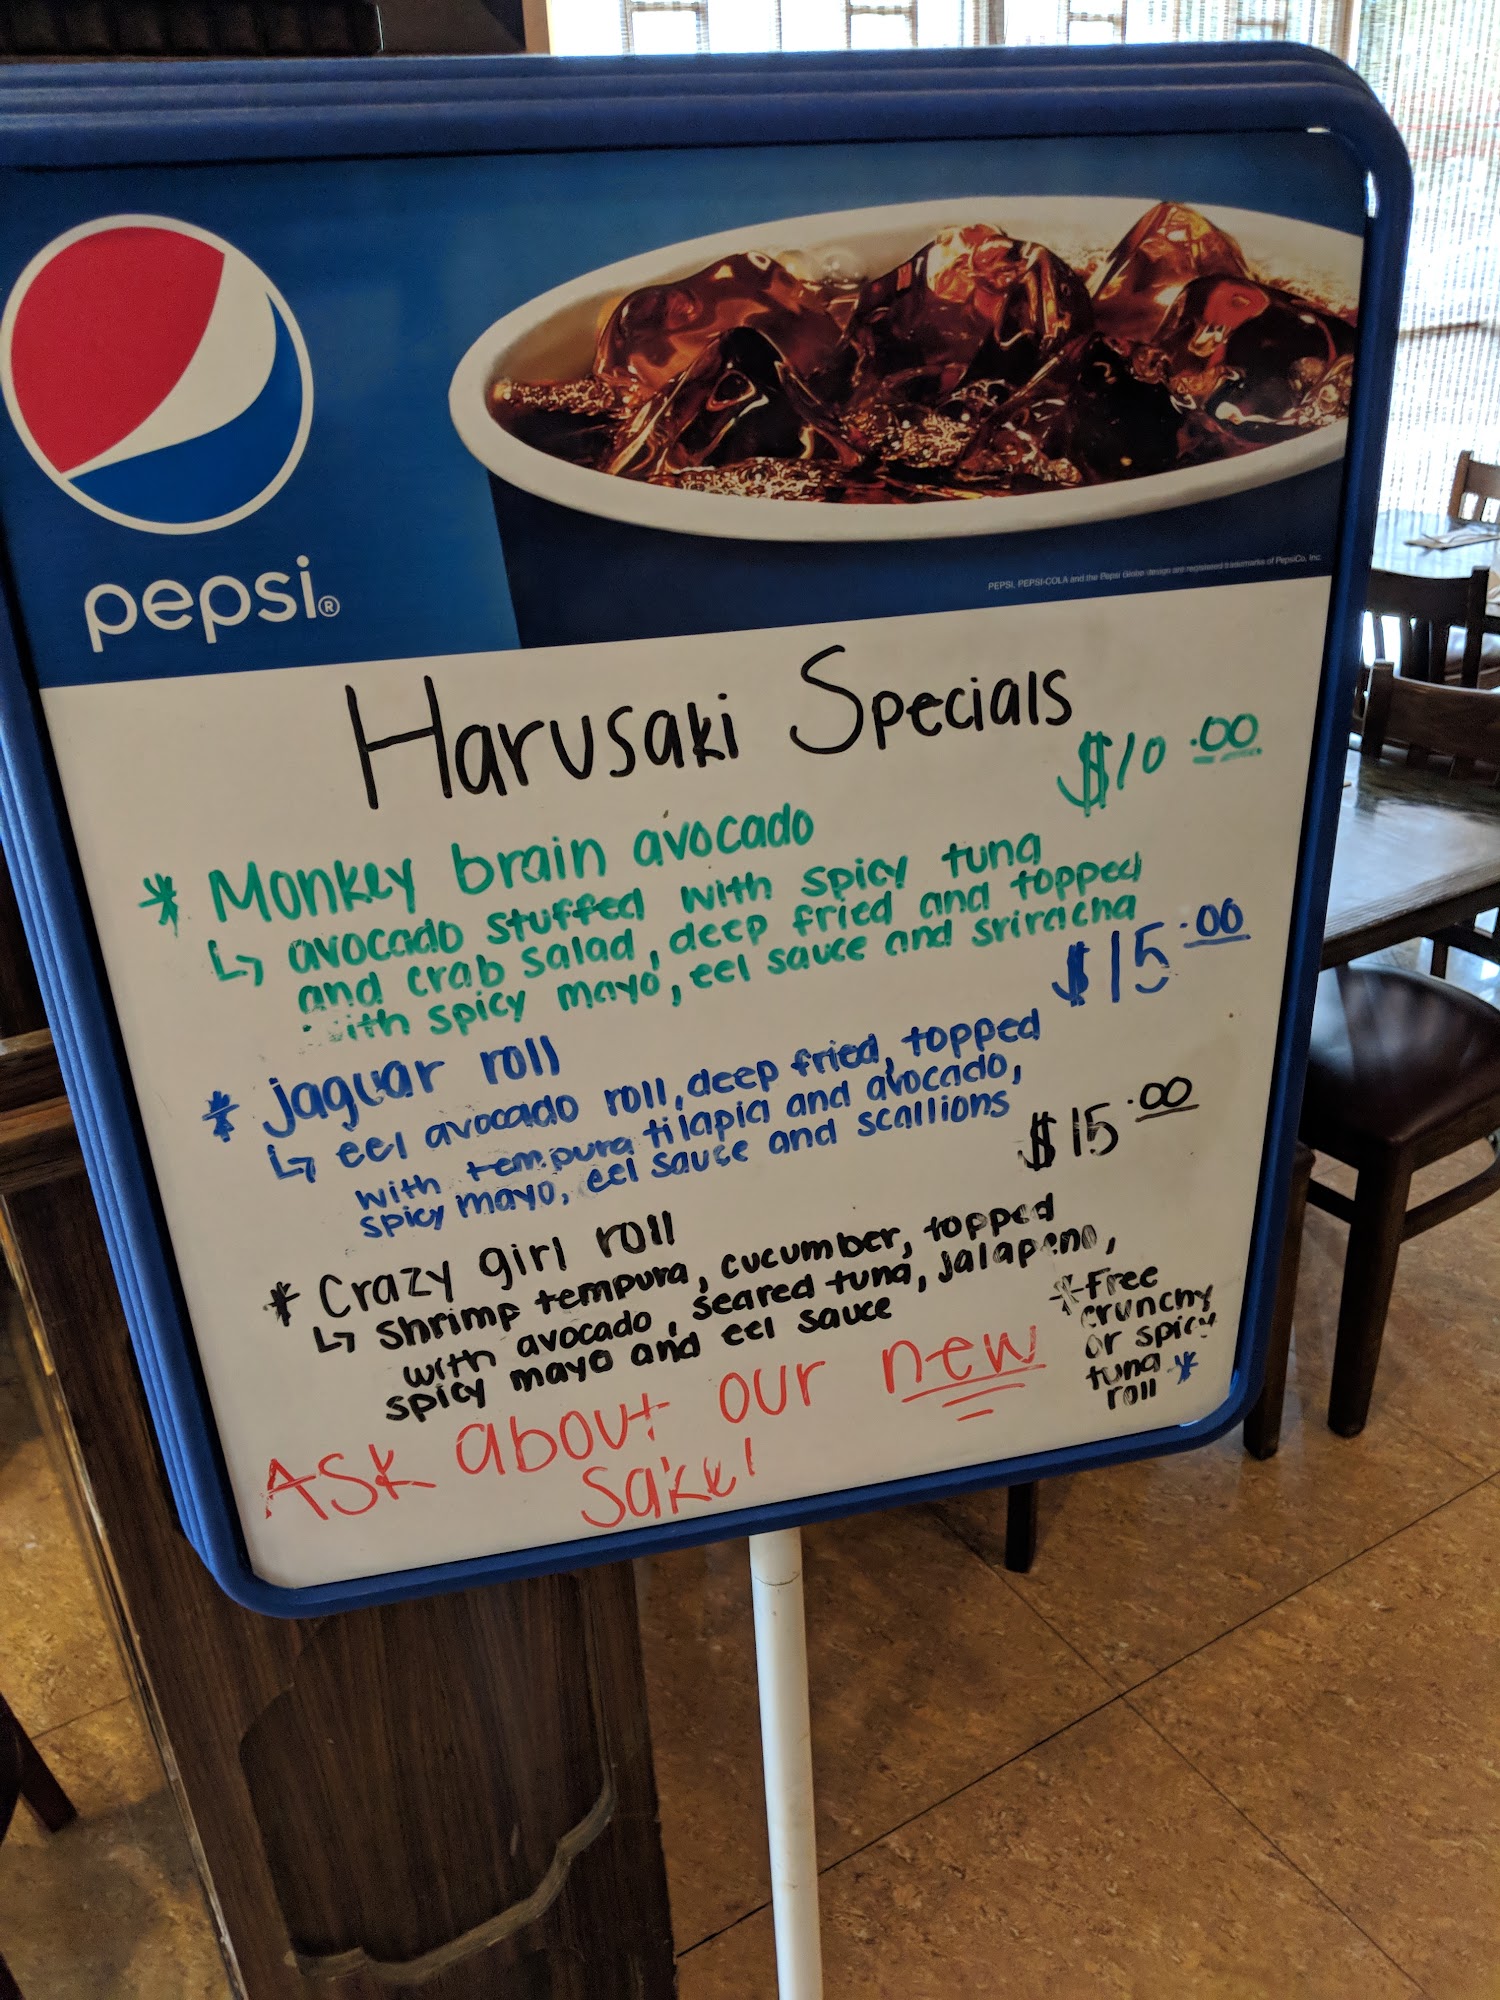 pepsi®
PEPSI, PEPSI-COLA and the Pepsi Globe design are registered trademarks of PepsiCo, Inc.
Harusaki Specials
* Monkey brain avocado $10.00
↳ avocado stuffed with spicy tuna
and crab salad, deep fried and topped
with spicy mayo, eel sauce and sriracha
* jaguar roll $15.00
↳ eel avocado roll, deep fried, topped
with tempura tilapia and avocado,
spicy mayo, eel sauce and scallions
* Crazy girl roll $15.00
↳ Shrimp tempura, cucumber, topped
with avocado, seared tuna, jalapeno,
spicy mayo and eel sauce
*Free
crunchy
or spicy
tuna
roll*
Ask about our new
sake!